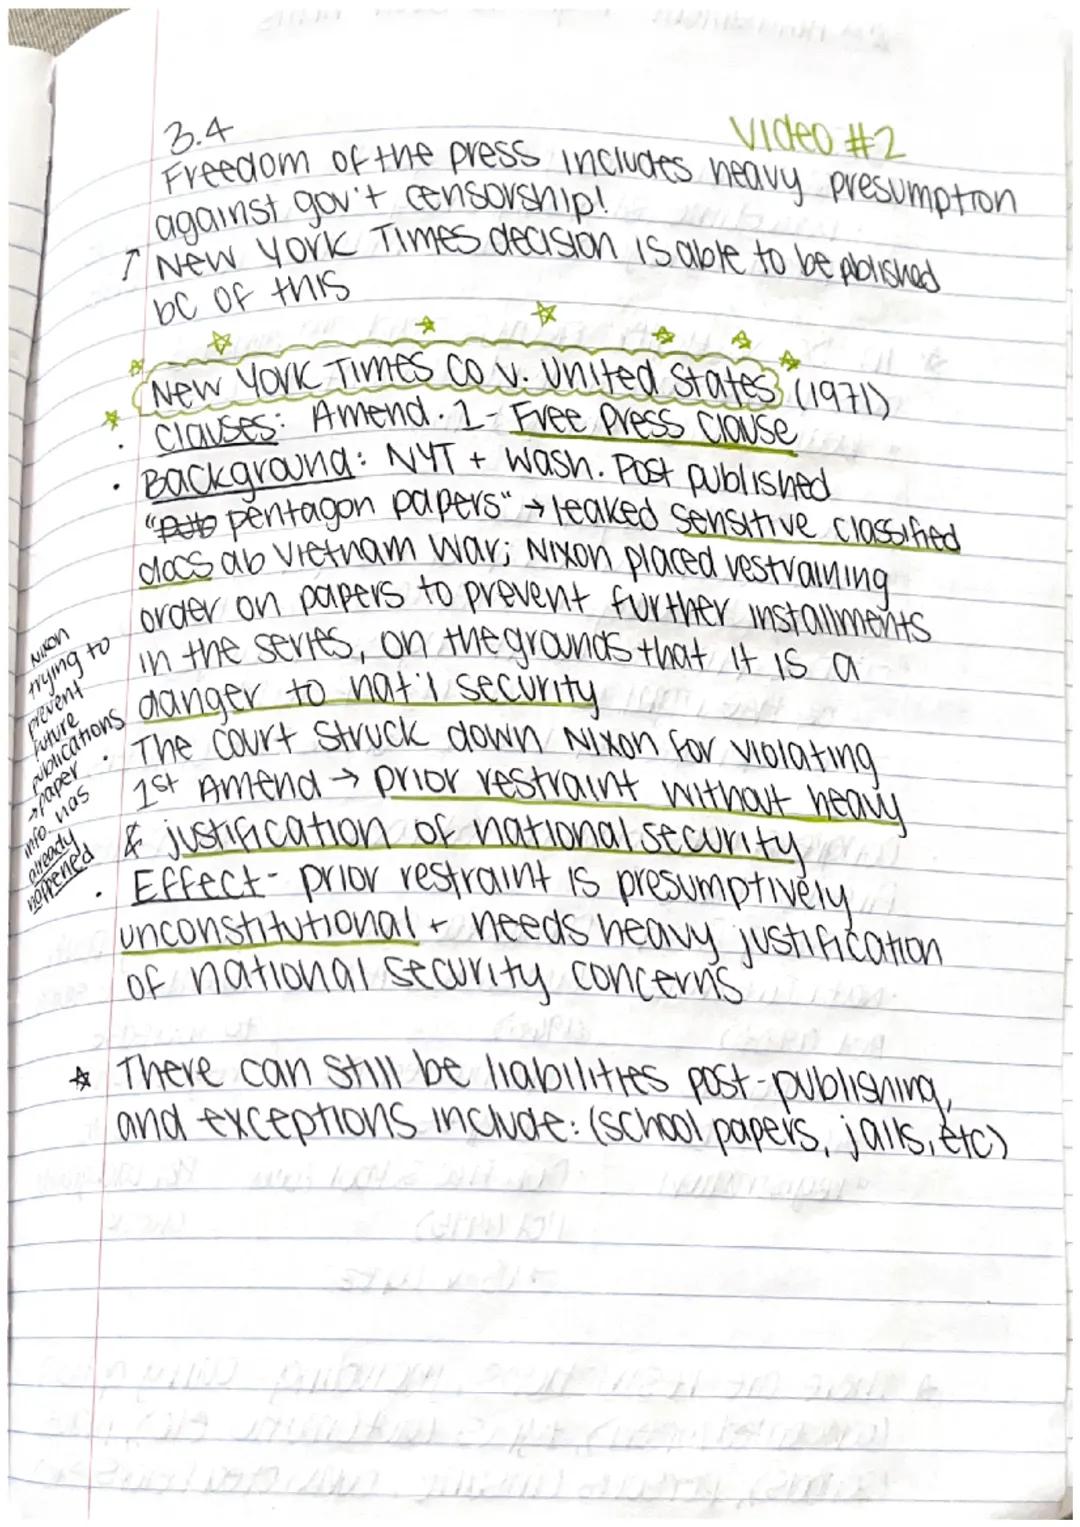 3.4
Video #2
Freedom of the press includes heavy presumption
against gov't censorship!
↑ New York Times decision is able to be pblished
bc of this
New York Times Co v. United States (1971)
• Clauses: Amend. 1 - Free Press Clause
• Background: NYT + Wash. Post published
" pentagon papers" → leaked sensitive classified
docs ab Vietnam War; Nixon placed restraining
order on papers to prevent further installments
in the series, on the grounds that it is a
danger to nat'l security
• The court struck down Nixon for violating
1st Amend → prior restraint without heavy
& justification of national security
• Effect - prior restraint is presumptively
unconstitutional + needs heavy justification
of national security concerns
Nixon
trying to
prevent
future
publications
→ paper
info was
already
happened
☆ There can still be liabilities post-publishing,
and exceptions include: (school papers, jails, etc)